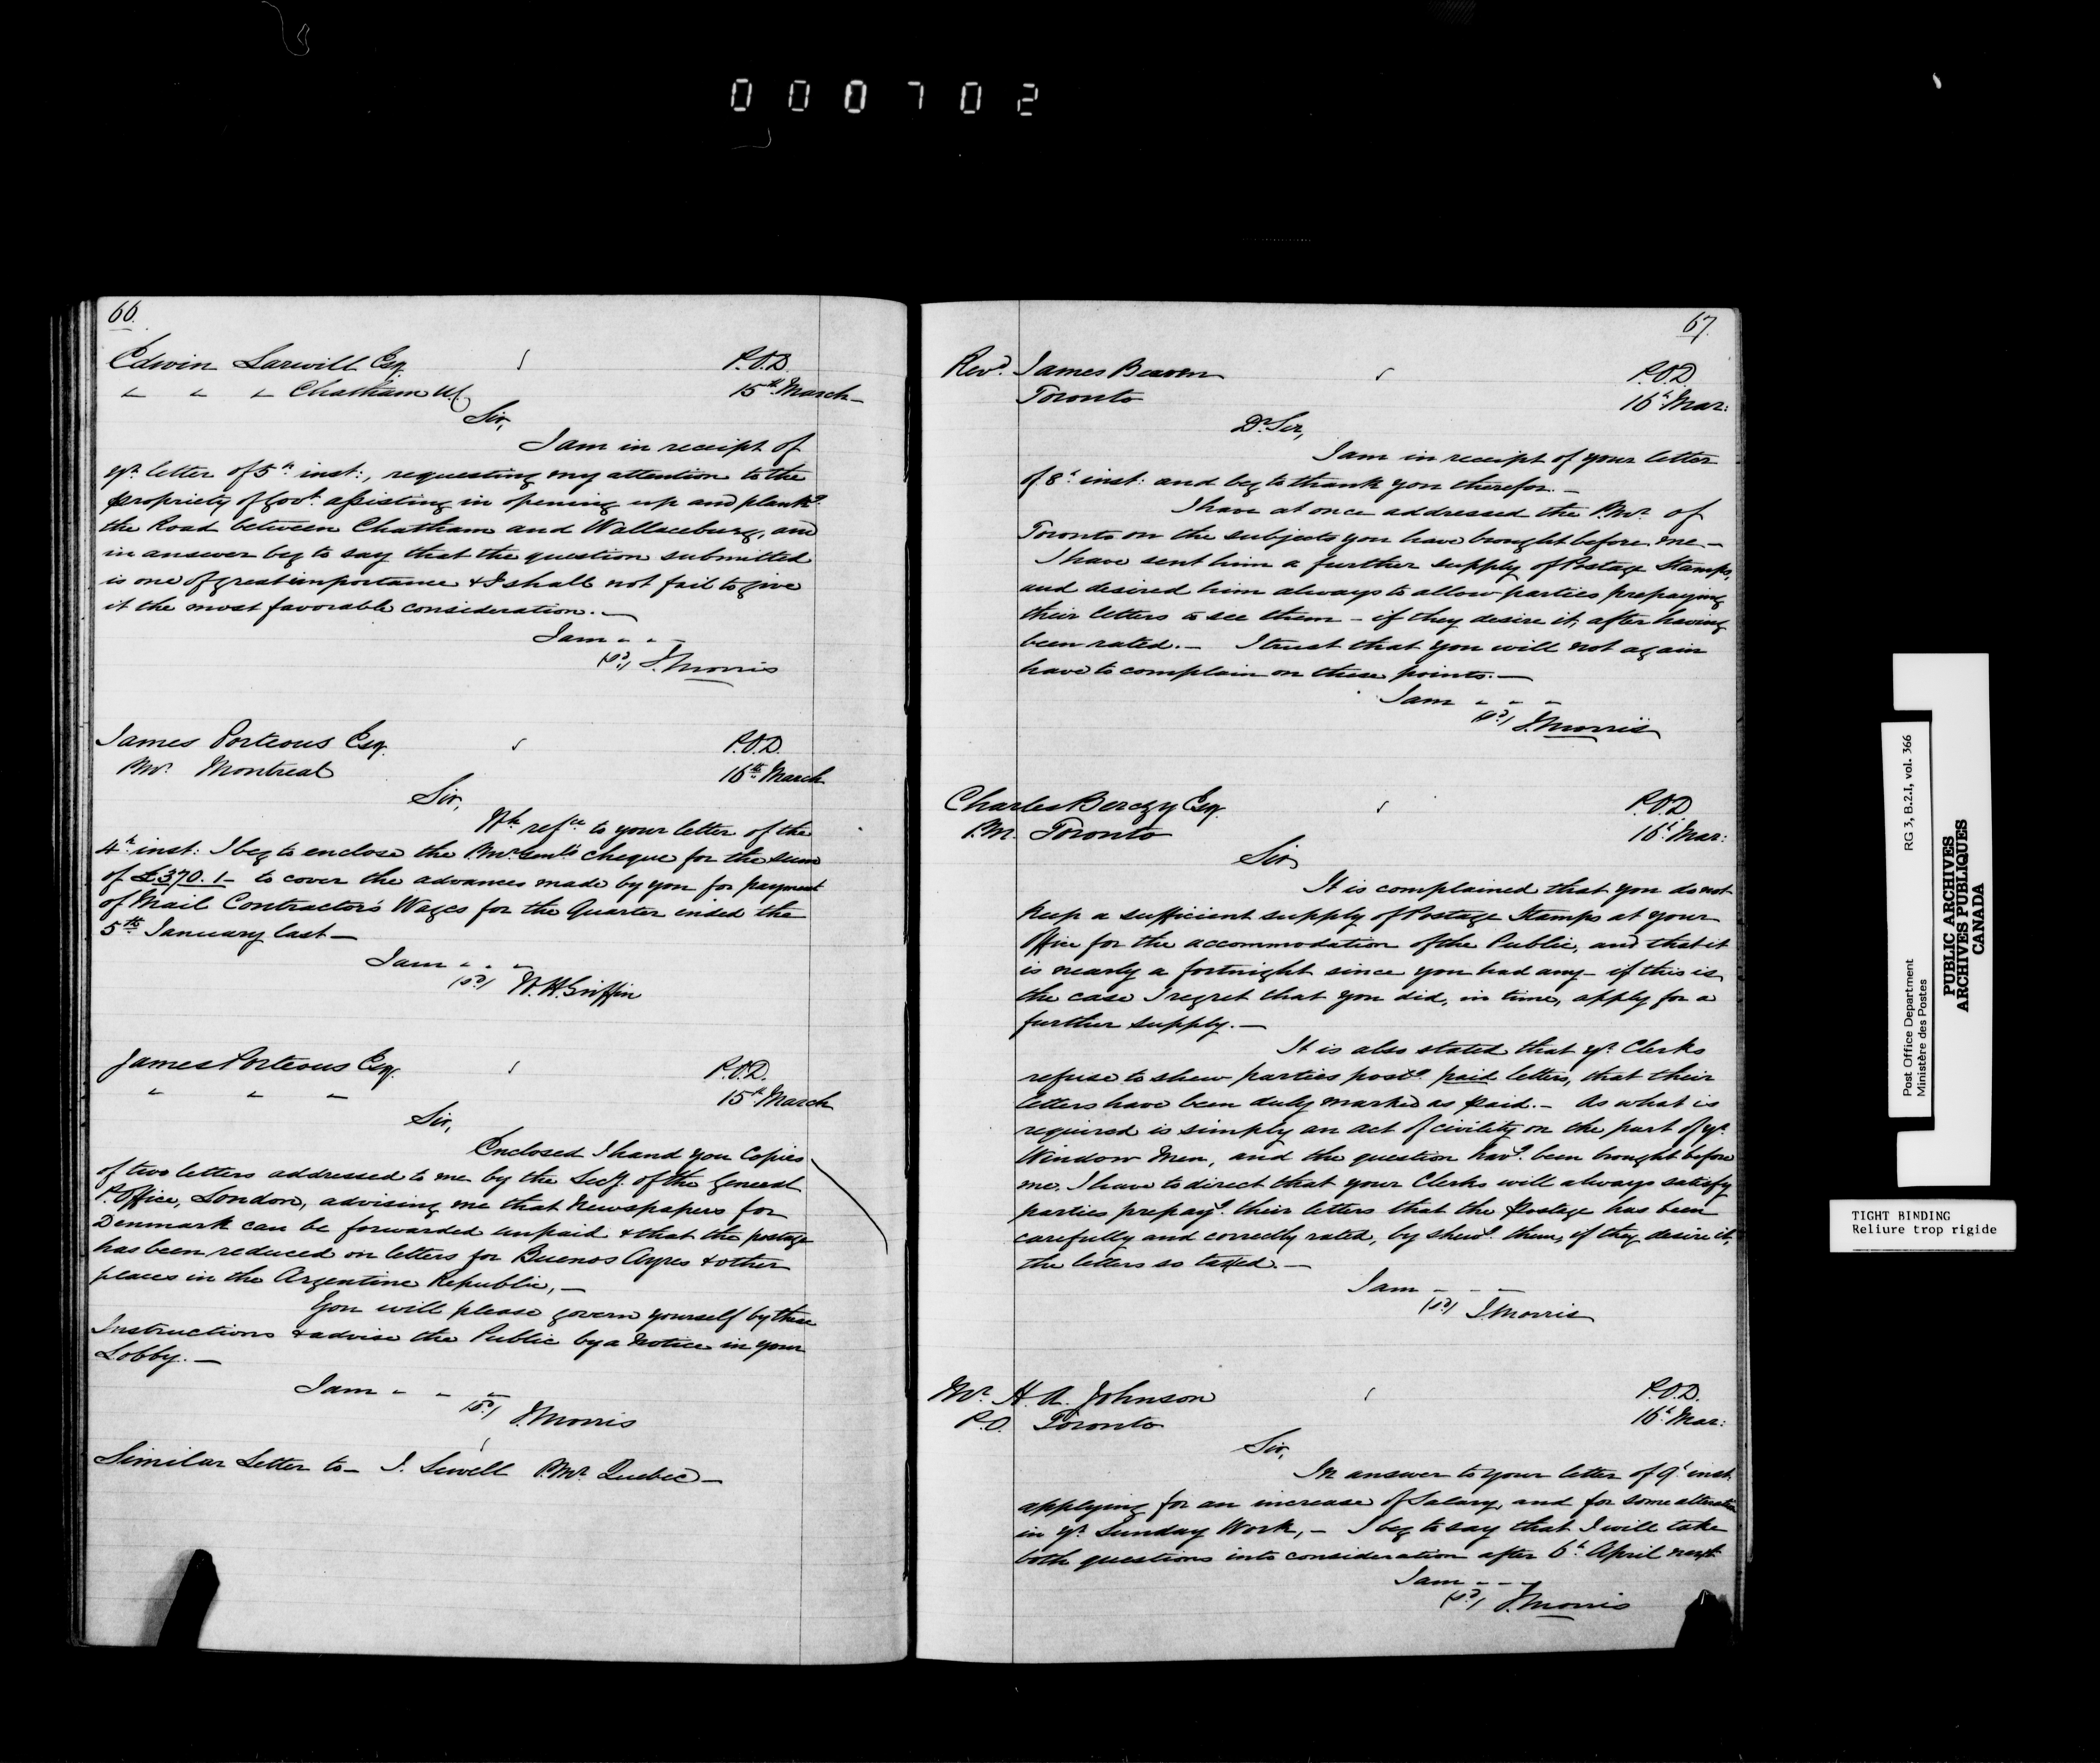 000702
66.
Edwin Larwill Esq.
" " " Chatham UC
P.O.D.
15th March
Sir,
I am in receipt of
yr letter of 5th inst:, requesting my attention to the
propriety of Govt. assisting in opening up and plankg.
the Road between Chatham and Wallaceburg, and
in answer beg to say that the question submitted
is one of great importance & I shall not fail to give
it the most favorable consideration. —
I am - - -
(sd) J. Morris
James Porteous Esq.
P.Mr. Montreal
P.O.D.
16th March
Sir,
Wth refce to your letter of the
4th inst: I beg to enclose the P.Mr Genl's cheque for the sum
of £370. 1 - to cover the advances made by you for payment
of Mail Contractor's Wages for the Quarter ended the
5th January last —
I am - - -
(sd) W. H. Griffin
James Porteous Esq.
" " "
P.O.D.
15th March
Sir,
Enclosed I hand you Copies
of two letters addressed to me by the Secy. of the General
P. Office, London, advising me that Newspapers for
Denmark can be forwarded unpaid & that the postage
has been reduced on letters for Buenos Ayres & other
places in the Argentine Republic, —
You will please govern yourself by these
Instructions & advise the Public by a Notice in your
Lobby. —
I am - - -
(sd) J. Morris
Similar Letter to - J. Sewell P.Mr Quebec —
67.
Revd. James Beaven
Toronto
P.O.D.
16th Mar:
Dr Sir,
I am in receipt of your letter
of 8th inst: and beg to thank you therefor. —
I have at once addressed the P.Mr. of
Toronto on the subjects you have brought before me —
I have sent him a further supply of Postage Stamps,
and desired him always to allow parties prepaying
their letters to see them - if they desire it, after having
been rated. — I trust that you will not again
have to complain on these points. —
I am - - -
(sd) J. Morris
Charles Berczy Esq.
P.M. Toronto
P.O.D.
16th Mar:
Sir
It is complained that you do not
keep a sufficient supply of Postage Stamps at your
Office for the accommodation of the Public, and that it
is nearly a fortnight since you had any - if this is
the case I regret that you did, in time, apply for a
further supply. —
It is also stated that yr Clerks
refuse to shew parties postg. paid letters, that their
letters have been duly marked as paid. — As what is
required is simply an act of civility on the part of yr
Window Men, and the question havg. been brought before
me, I have to direct that your Clerks will always satisfy
parties prepayg. their letters that the Postage has been
carefully and correctly rated, by shewg. them, if they desire it,
the letters so taxed. —
I am - - -
(sd) J. Morris
Mr. H. A. Johnson
P.O. Toronto
P.O.D.
16th Mar:
Sir,
In answer to your letter of 9th inst.
applying for an increase of Salary, and for some alteration
in yr. Sunday Work, — I beg to say that I will take
both questions into consideration after 6th April next
I am - - -
(sd) J. Morris
Post Office Department RG 3, B.2.I, vol. 366
Ministère des Postes
PUBLIC ARCHIVES
ARCHIVES PUBLIQUES
CANADA
TIGHT BINDING
Reliure trop rigide